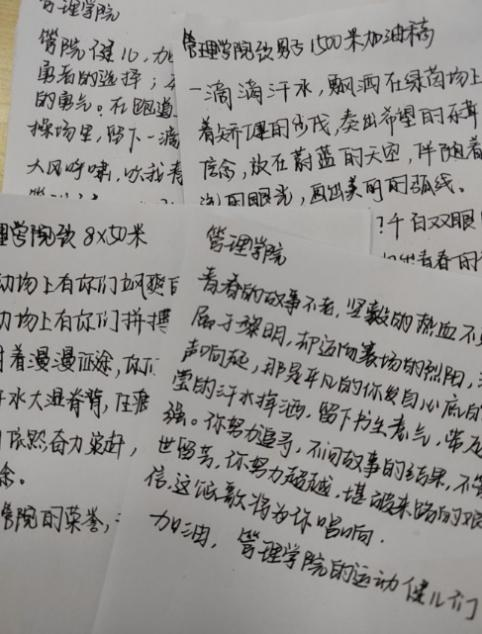 管理学院
管院健儿,加
勇者的选择;
的勇气。在跑道
操场里,留下一滴
大风呼啸,吹我青
管理学院致男子1500米加油稿
一滴滴汗水,飘洒在绿茵场上
着矫健的步伐,奏出希望的乐章
信念,放在蔚蓝的天空,伴随着
的眼光,画出美丽的弧线。
?千百双眼
青春的
理学院致8×50米
动场上有你们飒爽
力场上有你们拼搏
着漫漫征途,你们
水大湿脊背,
依然奋力追赶,
念。
管院的荣誉,
管理学院
青春的故事不老,坚毅的热血不
属于黎明,却迈向赛场的烈阳,
声响起,那是平凡的你发自心底的
的汗水挥洒,留下书生意气,
强。你努力追寻,不问故事的结果,不
世留芳,你努力超越,堪破来路的艰
信,这凯歌将为你唱响。
加油,管理学院的运动健儿们